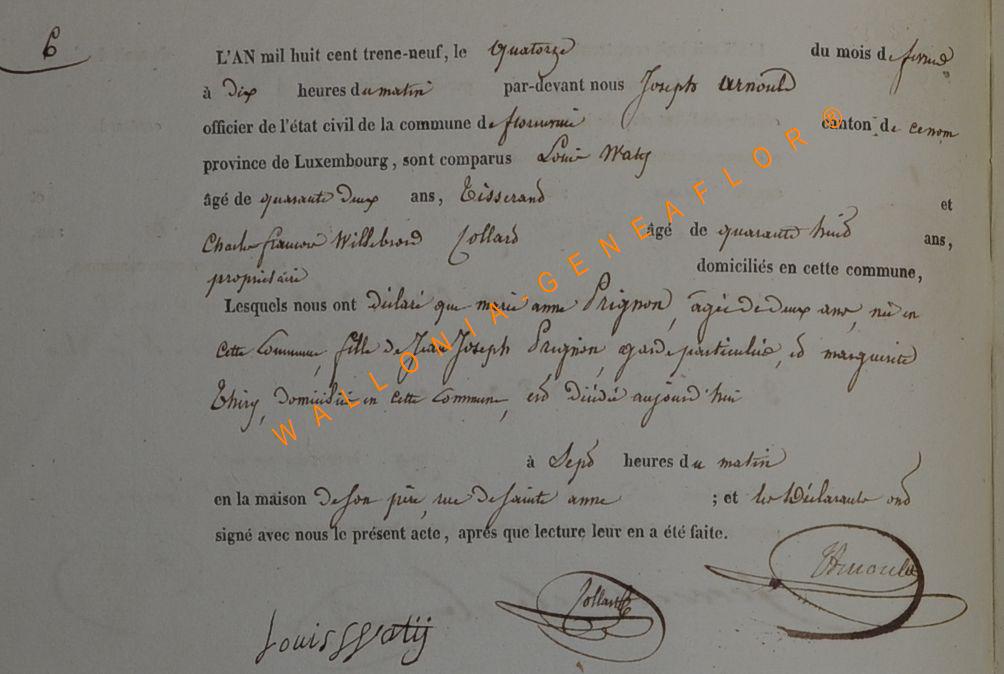 6
L'AN mil huit cent trene-neuf, le quatorze du mois de
à dix heures du matin par-devant nous Joseph Arnould
officier de l'état civil de la commune de florenville canton de ce nom
province de Luxembourg, sont comparus Louis Watij
âgé de quarante deux ans, Tisserand et
Charles françois Willebrord Collard âgé de quarante huit ans,
propriétaire domiciliés en cette commune,
Lesquels nous ont déclaré que marie anne Prignon, âgée de deux ans, née en
cette Commune, fille de Jean Joseph Prignon, garde particulier, et marguerite
Thiry, domiciliés en cette Commune, est décédée aujourd'hui
à Sept heures du matin
en la maison de son père, rue de sainte anne ; et les Déclarants ont
signé avec nous le présent acte, aprés que lecture leur en a été faite.
Arnould
Collard
Louis Watij
WALLONIA-GENEAFLOR ®